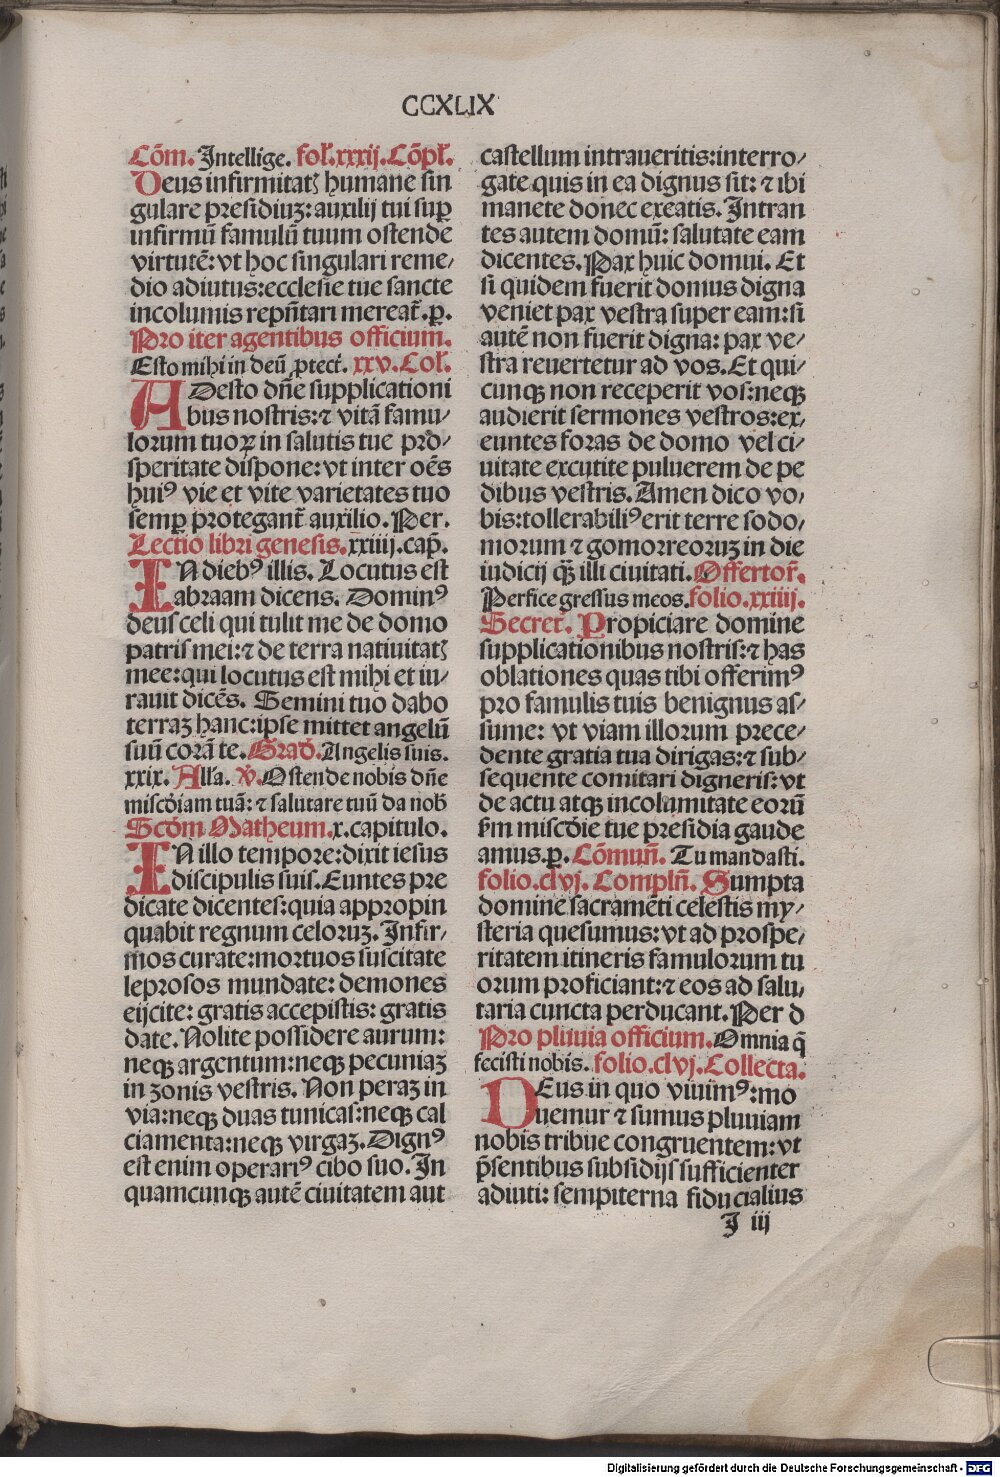 CCXLIX
Cōm. Intellige. fol.xxxij. Cōpl.
Deus infirmitatꝫ humane sin
gulare presidiuꝫ: auxilij tui sup̱
infirmū famulū tuum ostende
virtutē: vt hoc singulari reme⸗
dio adiutus: ecclesie tue sancte
incolumis repn̄tari mereat̄. p̱.
Pro iter agentibus officium.
Esto mihi in deū ꝓtect̄. xxv. Col.
ADesto dn̄e supplicationi
bus nostris: ⁊ vitā famu⸗
lorum tuoꝝ in salutis tue pro⸗
speritate dispone: vt inter oēs
huiꝰ vie et vite varietates tuo
semp̱ protegant̄ auxilio. Per.
Lectio libri genesis. xxiiij. cap̄.
IN diebꝰ illis. Locutus est
abraam dicens. Dominꝰ
deus celi qui tulit me de domo
patris mei: ⁊ de terra natiuitatꝫ
mee: qui locutus est mihi et iu⸗
rauit dicēs. Semini tuo dabo
terraꝫ hanc: ipse mittet angelū
suū corā te. Grad̄. Angelis suis.
xxix. Alla. v̄. Ostende nobis dn̄e
misc̄diam tuā: ⁊ salutare tuū da nob̄
Scd̄m Matheum. x. capitulo.
IN illo tempore: dixit iesus
discipulis suis. Euntes pre
dicate dicentes: quia appropin
quabit regnum celoruꝫ. Infir⸗
mos curate: mortuos suscitate
leprosos mundate: demones
eijcite: gratis accepistis: gratis
date. Nolite possidere aurum:
neqꝫ argentum: neqꝫ pecuniaꝫ
in zonis vestris. Non peraꝫ in
via: neqꝫ duas tunicas: neqꝫ cal
ciamenta: neqꝫ virgaꝫ. Dignꝰ
est enim operariꝰ cibo suo. In
quamcunqꝫ autē ciuitatem aut
castellum intraueritis: interro⸗
gate quis in ea dignus sit: ⁊ ibi
manete donec exeatis. Intran
tes autem domū: salutate eam
dicentes. Pax huic domui. Et
si quidem fuerit domus digna
veniet pax vestra super eam: si
autē non fuerit digna: pax ve⸗
stra reuertetur ad vos. Et qui⸗
cunqꝫ non receperit vos: neqꝫ
audierit sermones vestros: ex⸗
euntes foras de domo vel ci⸗
uitate excutite puluerem de pe
dibus vestris. Amen dico vo⸗
bis: tollerabiliꝰ erit terre sodo⸗
morum ⁊ gomorreoruꝫ in die
iudicij qꝫ̄ illi ciuitati. Offertor̄.
Perfice gressus meos. folio. xxiiij.
Secret̄. Propiciare domine
supplicationibus nostris: ⁊ has
oblationes quas tibi offerimꝰ
pro famulis tuis benignus as⸗
sume: vt viam illorum prece⸗
dente gratia tua dirigas: ⁊ sub⸗
sequente comitari digneris: vt
de actu atqꝫ incolumitate eorū
s̄m misc̄die tue presidia gaude
amus. p̱. Cōmuñ. Tu mandasti.
folio. clvj. Compln̄. Sumpta
domine sacramēti celestis my⸗
steria quesumus: vt ad prospe⸗
ritatem itineris famulorum tu
orum proficiant: ⁊ eos ad salu⸗
taria cuncta perducant. Per d
Pro pluuia officium. Omnia q̄
fecisti nobis. folio. clvj. Collecta.
DEus in quo viuimꝰ: mo
uemur ⁊ sumus pluuiam
nobis tribue congruentem: vt
p̄sentibus subsidijs sufficienter
adiuti: sempiterna fiducialius
I iij
Digitalisierung gefördert durch die Deutsche Forschungsgemeinschaft - DFG